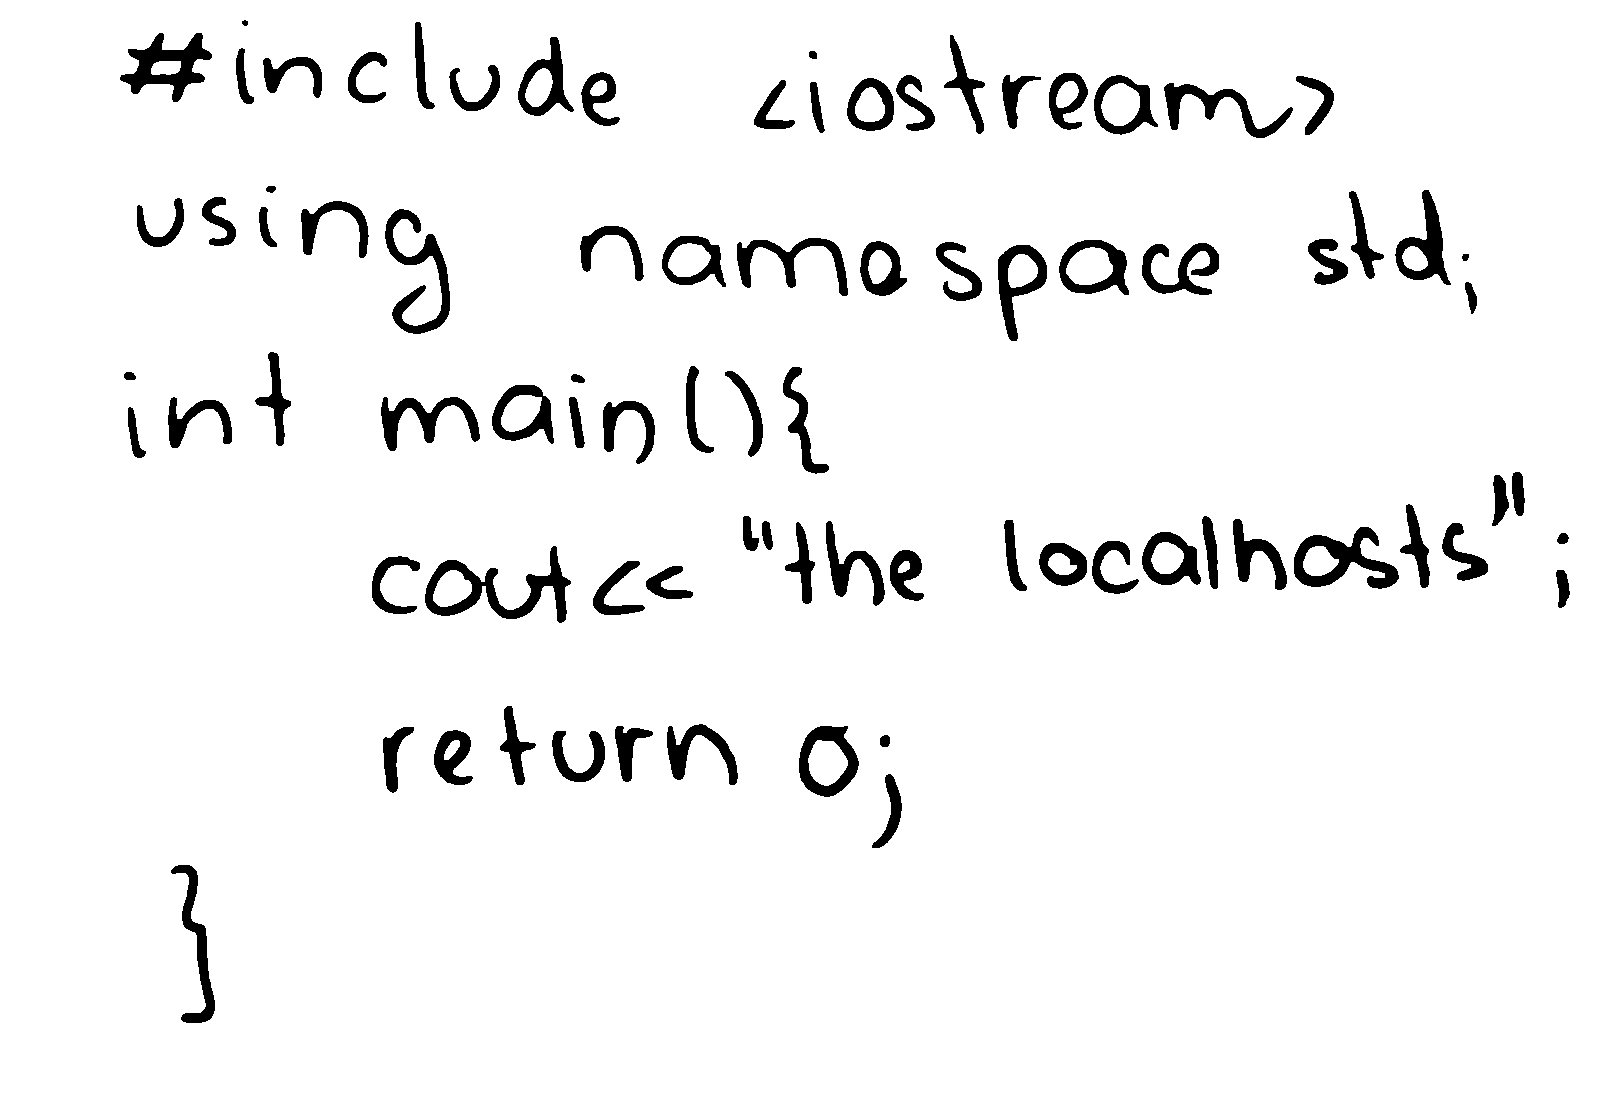 #include <iostream>
using namespace std;
int main(){
cout<< "the localhosts";
return 0;
}